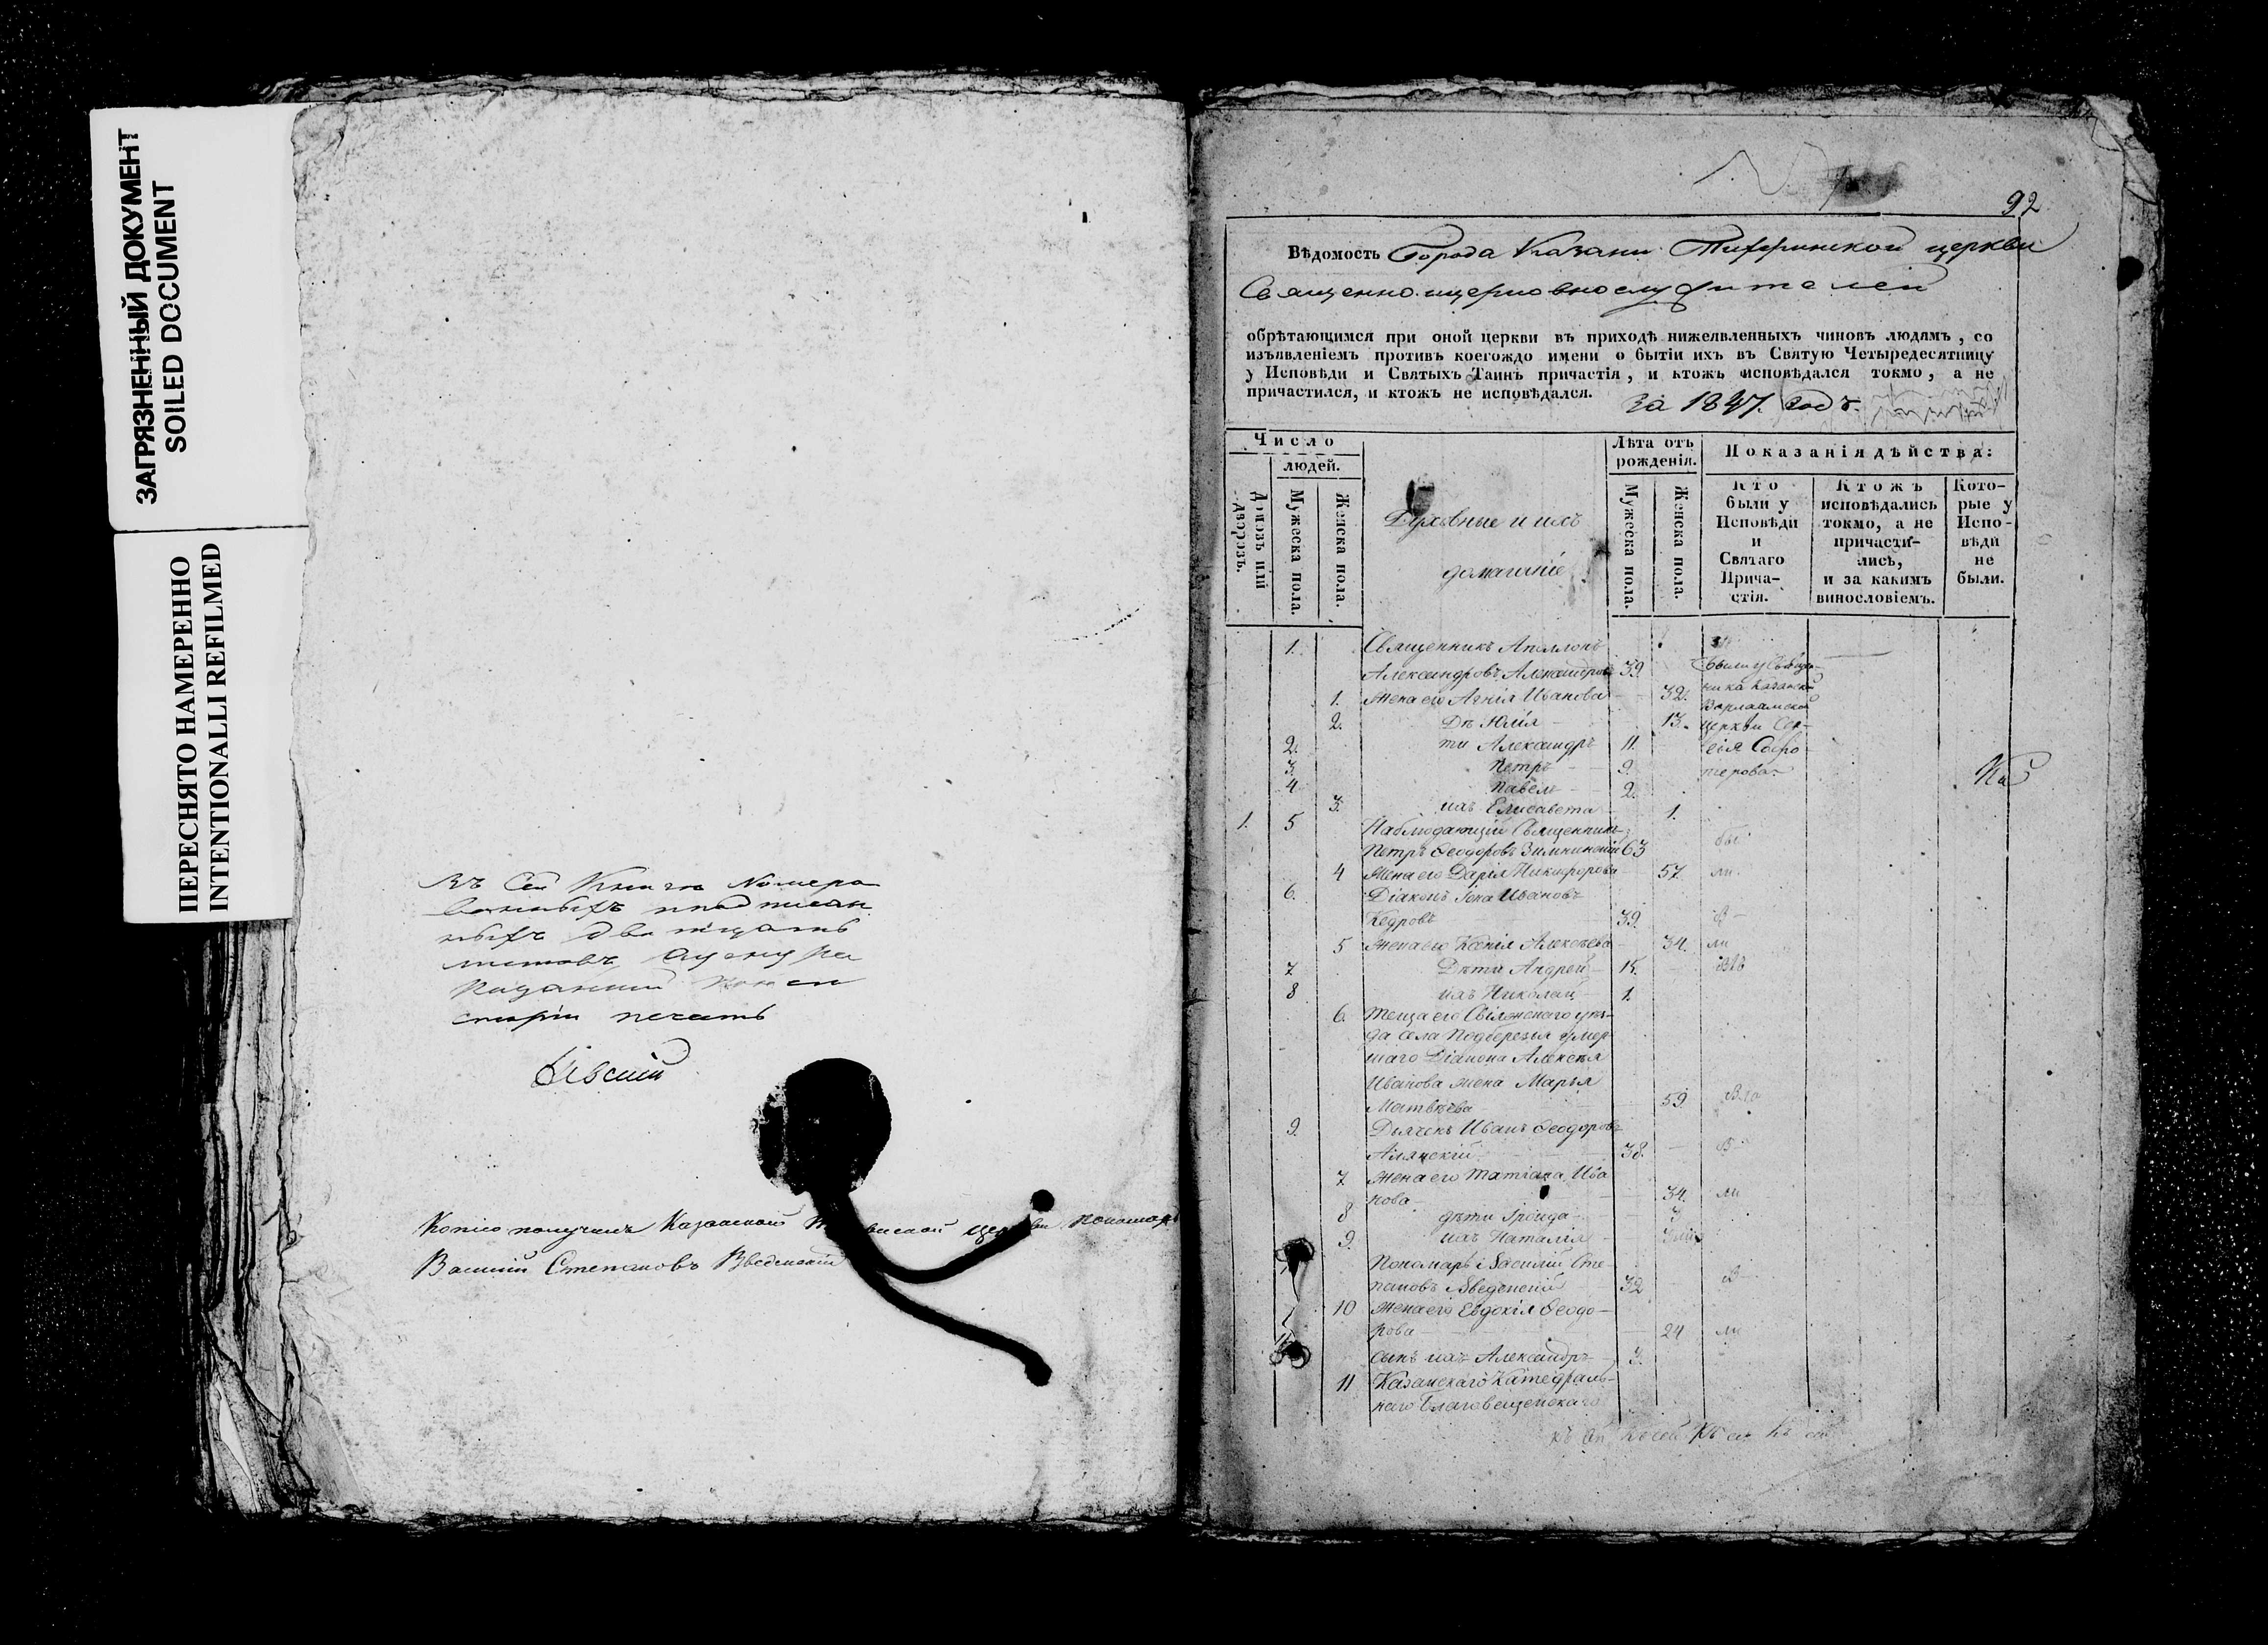 ЗАГРЯЗНЕННЫЙ ДОКУМЕНТ
SOILED DOCUMENT
ПЕРЕСНЯТО НАМЕРЕННО
INTENTIONALLI REFILMED
Въ сей Книге Номеро
ванныхъ
листовъ
печать
Копию получилъ Казанской церкви пономарь
Василий Степановъ Введенский
92
Вѣдомость Города Казани Тихвинской церкви
Священно ицерковнослужителей
обрѣтающимся при оной церкви въ приходѣ нижеявленныхъ чиновъ людямъ, со
изъявленіемъ противъ коегождо имени о бытіи ихъ въ Святую Четыредесятницу
у Исповѣди и Святыхъ Таинъ причастія, и ктожъ исповѣдался токмо, а не
причастился, и ктожъ не исповѣдался. за 1847. годъ.
Число
людей.
Домовъ или дворовъ.
Мужеска пола.
Женска пола.
Духовные и ихъ
домашніе
Лѣта отъ рожденія.
Мужеска пола.
Женска пола.
Показанія дѣйства:
Кто были у Исповѣди и Святаго Прича-стія.
Ктожъ исповѣдались токмо, а не причасти-лись, и за какимъ винословіемъ.
Кото-рые у Испо-вѣди не были.
1. Священникъ Аполлонъ
Александровъ Александровъ 39. были у Священ-
1. Жена его Агнія Иванова 32. ника Казанской
2. Дѣ Юлія 13. Варлаамской церкви
2. ти Александръ 11.
3. Петръ 9.
4 Павелъ 2.
3. ихъ Елисавета 1.
1. 5 Наблюдающій Священникъ
Петръ Ѳеодоровъ 63 бы
4 Жена его Дарія Никифорова 57. ли
6. Діаконъ Іона Ивановъ
Кедровъ 39. В
5 Жена его Ксенія Алексѣева 34. ли
7 Дѣти Андрей 15.
8 ихъ Николай 1.
6. Теща его Свіяжскаго уѣз-
да села Подберезья умер
шаго Діакона Алексѣя
Иванова жена Марья
Матвѣева 59
9. Дьячекъ Иванъ Ѳеодоровъ
38. В
7 Жена его Татіана Ива
нова 34. ли
8 дѣти Ироида 3
9. ихъ Наталія
Пономарь Василій Сте
пановъ Введенскій 32 В
10 Жена его Евдокія Ѳеодо-
рова 24 ли
Сынъ ихъ Александръ 3.
11 Казанскаго Катедраль-
наго Благовещенскаго